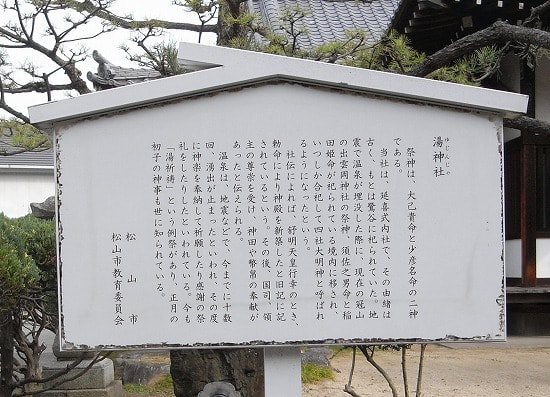 湯神社
ゆじんじゃ
祭神は、大己貴命と少彦名命の二神
である。
当社は、延喜式内社で、その由緒は
古く、もとは鷺谷に祀られていた。地
震で温泉が埋没した際に、現在の冠山
の出雲両神社の祭神、須佐之男命と稲
田姫命が祀られている境内に移され、
いつしか合祀して四社大明神と呼ばれ
るようになったという。
社伝によれば、舒明天皇行幸のとき、
勅命により神殿を新築したと旧記に記
されているという。その後、国司、領
主の尊崇を受け、神田や幣帛の奉献が
あったと伝えられる。
温泉は、地震などで、今までに十数
回、湧出が止まったといわれ、その度
に神楽を奉納して祈願したり感謝の祭
礼をしたりしたといわれている。今も
「湯祈祷」という例祭があり、正月の
初子の神事も世に知られている。
松山市
松山市教育委員会